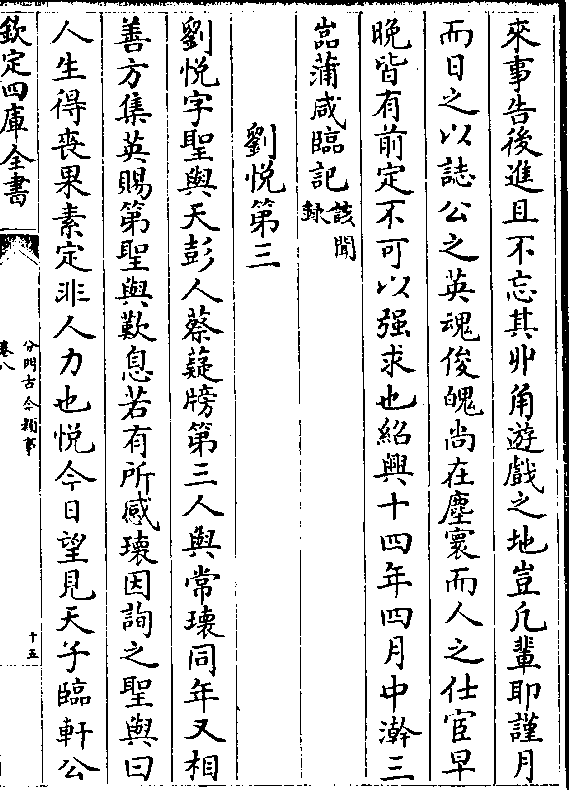 來事告後進且不忘其丱角遊戲之地豈凡輩耶謹月
而日之以誌公之英魂俊魄尚在塵寰而人之仕宦早
晚皆有前定不可以强求也紹興十四年四月中澣三
嵓蒲咸臨記該聞録
劉悦第三
劉悦字聖與天彭人蔡薿牓第三人與常瓌同年又相
善方集英賜第聖與歎息若有所感瓌因詢之聖與曰
人生得喪果素定非人力也悦今日望見天子臨軒公
欽定四庫全書
分門古今類事
卷八
十五